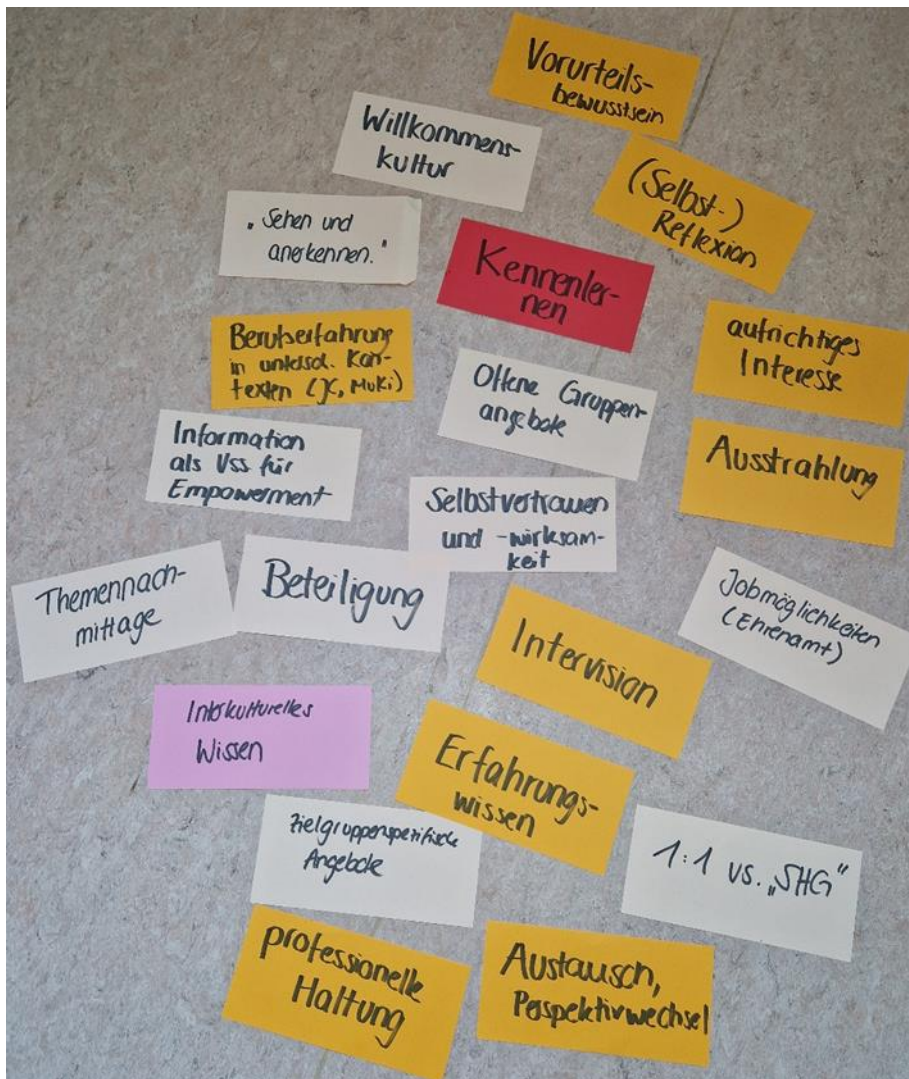 Vorurteils-
bewusstsein
Willkommens-
kultur
(Selbst-)
Reflexion
„Sehen und
anerkennen."
Kennenler-
nen
aufrichtiges
Interesse
Berufserfahrung
in untersch. Kon-
texten (JC, MuKi)
Offene Gruppen-
angebote
Ausstrahlung
Information
als Vss für
Empowerment
Selbstvertrauen
und -wirksam-
keit
Themennach-
mittage
Beteiligung
Jobmöglichkeiten
(Ehrenamt)
Intervision
Interkulturelles
Wissen
Erfahrungs-
wissen
Zielgruppenspezifische
Angebote
1:1 vs. „SHG"
professionelle
Haltung
Austausch,
Perspektivwechsel